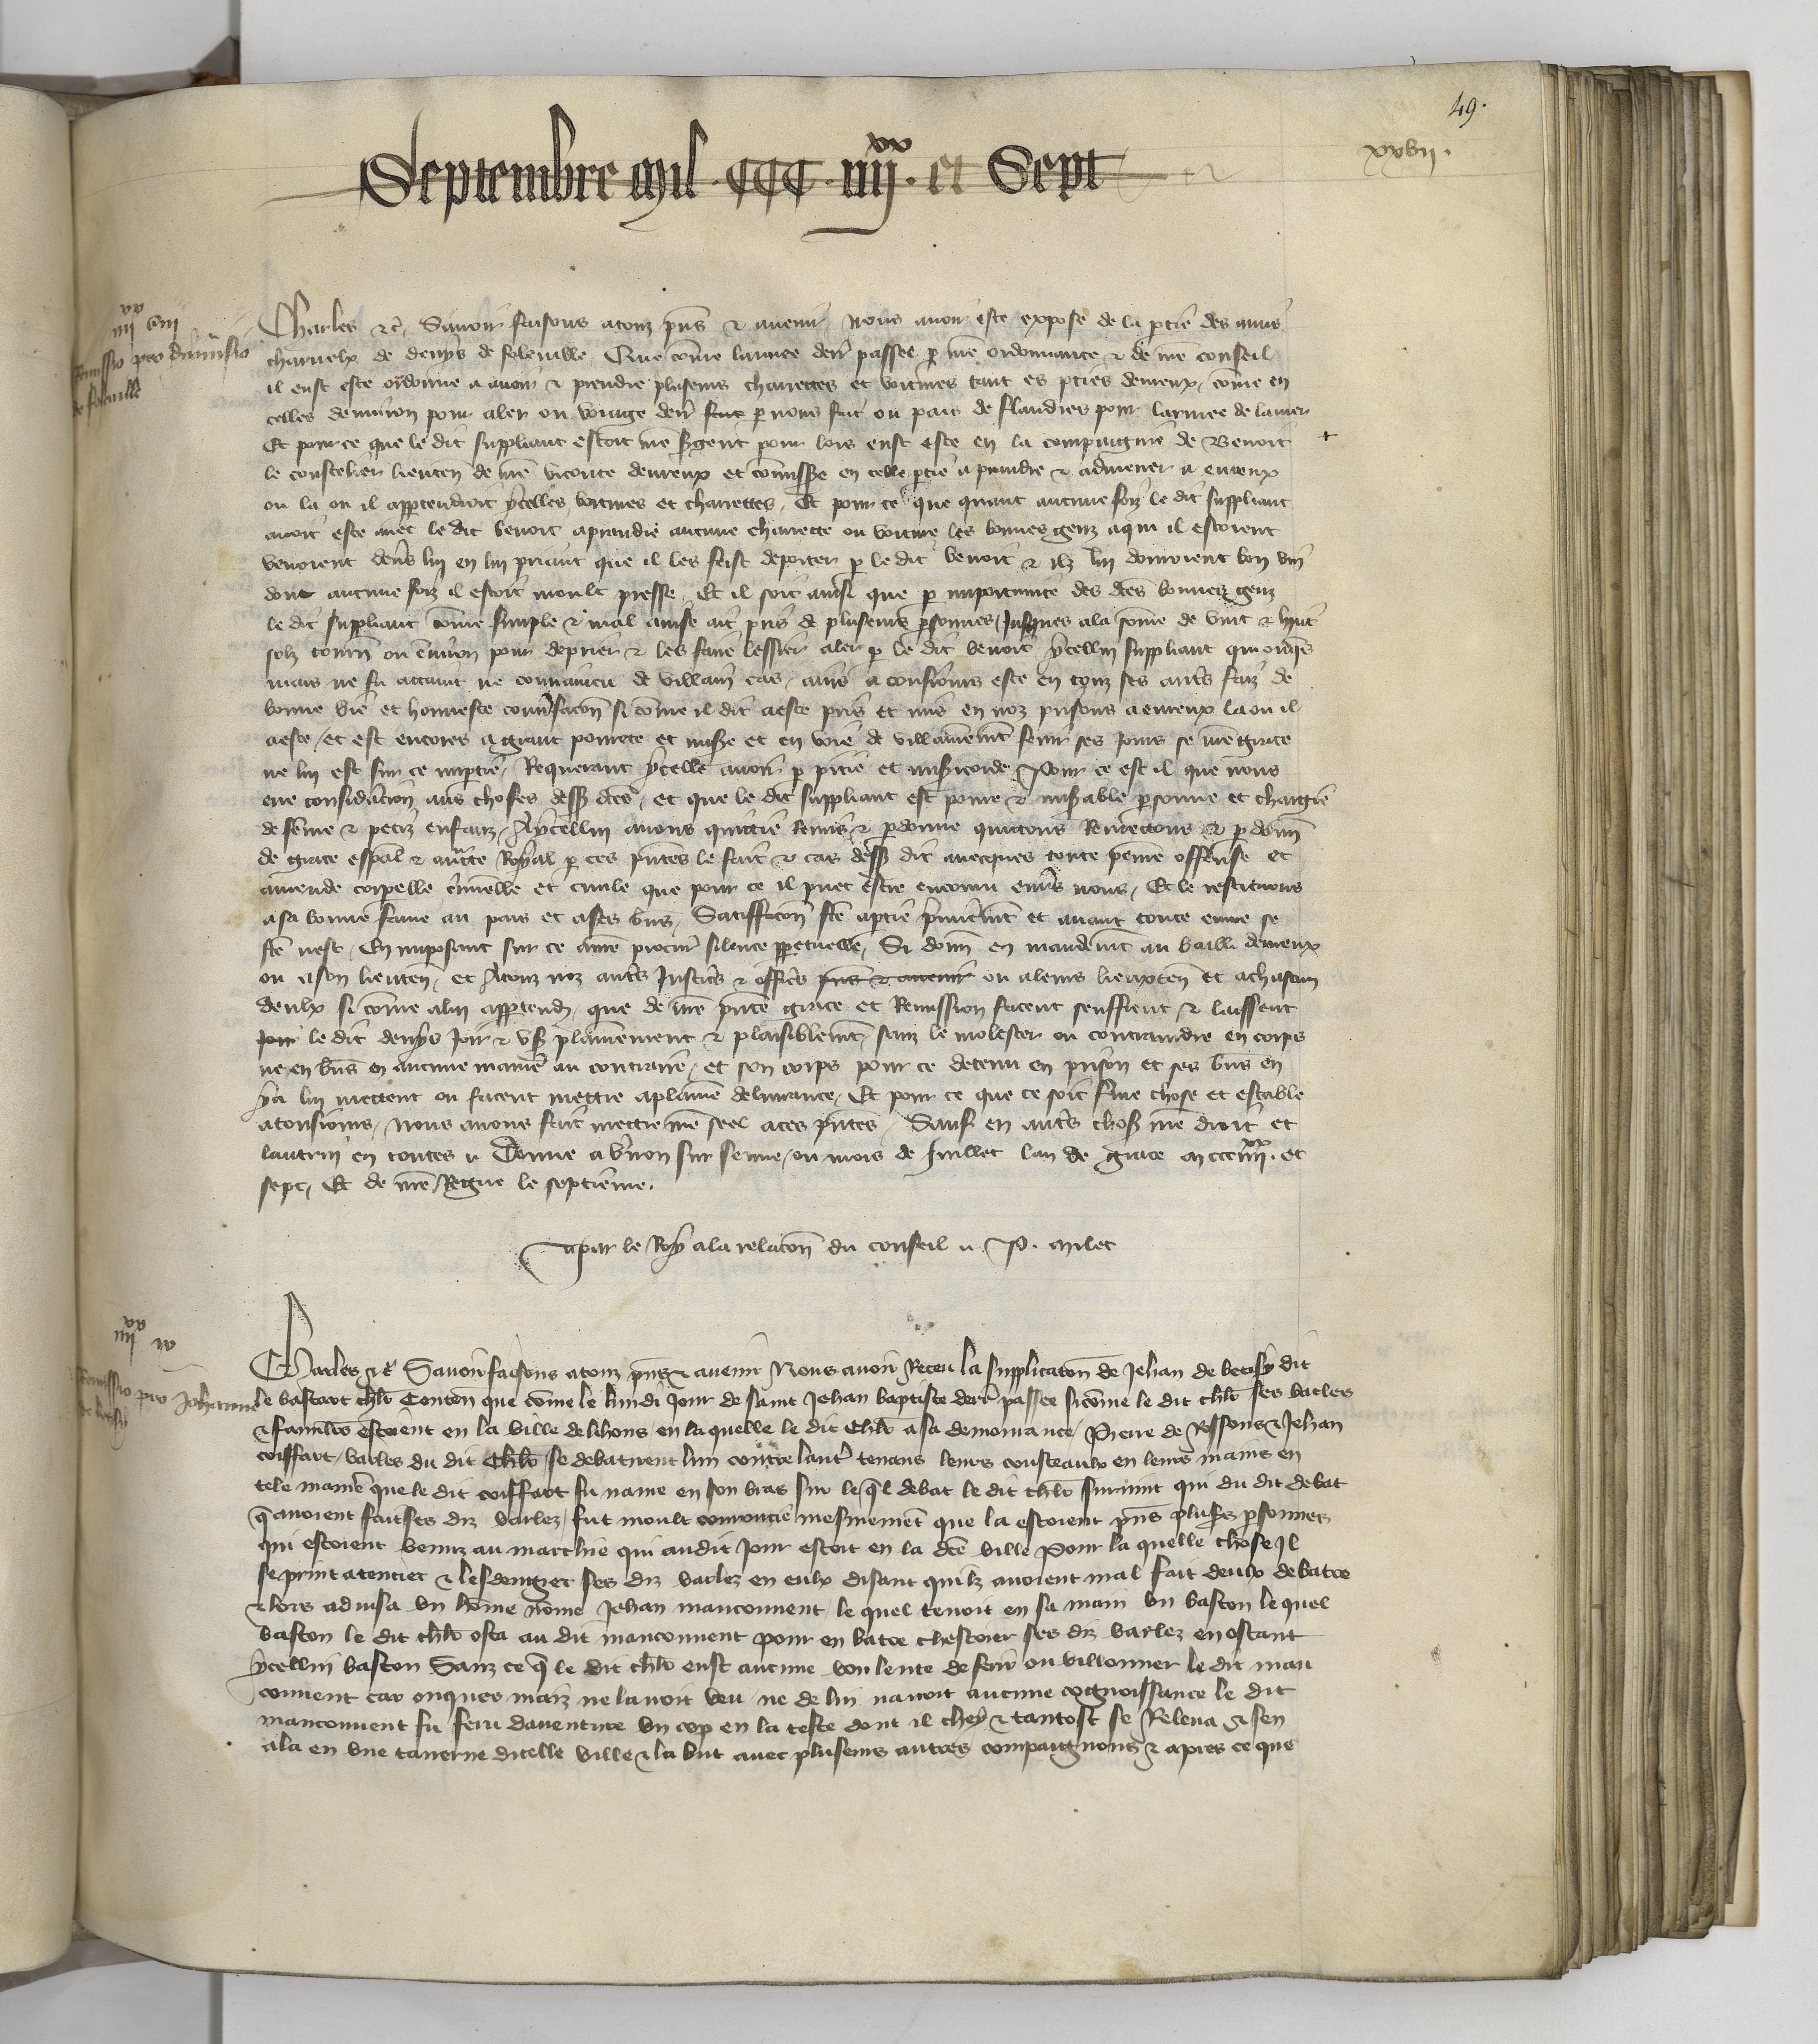 49.
xxvii.
Septembre mil CCC iiij xx. et Sept
iiij xx xiii
Remissio pro dionisio
de foleville
Charles etc. Savoir faisons a touz pns et avenir, nous avoir este expose de la ptie des amis
charnelz de denys de foleville Que come lannee derr passee p nre ordonnance et de nre conseil
il eust este ordonne a avoir et prendre pluseurs charettes et voitures tant es pties deureux, come en
celles denviron pour aler ou voiage derr fait p nous fait ou pais de flandres pour larmee de la mer
Et pour ce que le dit suppliant estoit nre sgent pour lors eust este en la compaignie de Benoit
le coustelier lieuten de nre viconte deureux et comisse en celle ptie a prendre et admener a eureux
ou la ou il appartendroit ycelles voitures et charettes, Et pour ce que quant aucune foiz le dit suppliant
avoit este avec le dit benoit a prandre aucune charette ou voiture les bonnes genz a qui il estoient
venoient devs lui en lui priant que il les feist deporter p le dit benoit et ilz lui donroient bon vin
dont aucune foiz il estoit moult presse, Et il soit ainsi que p importunite des des bonnes genz
le dit suppliant come simple et mal avise ait pris de pluseurs psonnes Jusques a la some de vint et huit
solz tourn ou environ pour deprier et les faire lessier aler p le dit benoit ycellui suppliant qui onqs
mais ne fu attaint ne convaincu de villain cas, ains a tousiours este en touz ses auts faiz de
bonne vie et honneste convsacon si come il dit a este pris et mis en noz prisons a eureux la ou il
a este, et est encores a grant povrete et mise et en voie de villainemt fenir ses jours se nre grace
ne lui est sur ce imptie, Requerant ycelle avoir p pitie et misicorde Pour ce est il que nous
eue consideracion aus choses dess des, et que le dit suppliant est povre et misable psonne et chargie
de feme et petiz enfanz, A ycellui avons quictie remis et pdonne quictons Remettons et pdonn
de grace espal et aucte Royal p ces pntes le fait et cas dess dit avecques toute peine offense et
amende corpelle criminelle et civile que pour ce il puet estre encouru envs nous, Et le restituons
a sa bonne fame au pais et a ses biens, Satiffacon fte a ptie premieremt et avant toute euvre se
fte nest, En imposant sur ce a nre procur silence ppetuelle, Si donn en mandemt au bailli deureux
ou a son lieuten, et A touz noz auts Justics et offics pns et avenir ou a leurs lieuxten et a chascun
deulx si come a lui appartendra, que de nre pnte grace et Remission facent seuffrent et laissent
Joir le dit denys Joir et us plainement et paisiblemt sanz le molester ou contraindre en corps
ne en biens en aucune manie au contraire, et son corps pour ce detenu en prison et ses biens en
ya lui mettent ou facent mettre a plaine delivrance, Et pour ce que ce soit ferme chose et estable
a tousiours, nous avons fait mettre nre seel a ces pntes, Sauf en auts choses nre droit et
lautrui en toutes. Donne a vernon sur seine, ou mois de Juillet lan de grace m ccc iiij xx. et
sept, Et de nre Regne le septieme.
par le Roy a la relacon du conseil. P. milet
iiij xx iv
Remissio pro Johanne
de betisy
Charles etc Savoir faisons a touz pns et avenir Nous avoir Receu la supplicacon de Jehan de betisy dit
le bastart chlr Conten que come le lundi Jour de saint Jehan baptiste derr passee si come le dit chlr ses varles
et familres estoient en la ville de lihons en laquelle le dit Chlr a sa demourance, Pierre de Rossons et Jehan
coiffart, varles du dit Chlr se debatirent lun contre lautr tenans leurs cousteaulx en leurs mains en
tele manie que le dit coiffart fu navre en son bras Sur le ql debat le dit chlr survint qui du dit debat
q avoient fait ses diz varlez, fut moult courroucie mesmement que la estoient pns pluss psonnes
qui estoient venuz au marchie qui au dit Jour estoit en la dte ville Pour la quelle chose Il
se print a tencier et lesdengier ses diz varlez en eulx disant quilz avoient mal fait deulx debatre
et lors advisa un home nome Jehan mauconvent, le quel tenoit en sa main un baston le quel
baston le dit chlr osta au dit mauconvent pour en batre chestoier ses diz varlez en ostant
ycellui baston Sanz ce q le dit chlr eust aucune voulente de ferir ou villenner le dit mau
convent car onques maiz ne lavoit veu, ne de lui navoit aucune cognoissance le dit
mauconvent fu feru daventure un cop en la teste dont il chey et tantost se Releva et sen
ala en une taverne dicelle ville et la but avec pluseurs autres compaignons et apres ce que